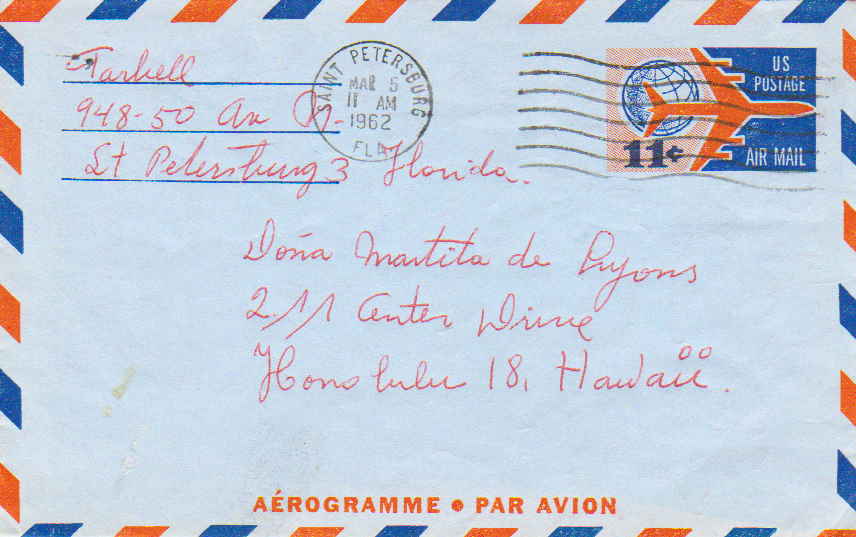 Tarbell
948-50 Av N.
St Petersburg 3 Florida.
SAINT PETERSBURG
MAR 5
11 AM
1962
FLA
US
POSTAGE
11¢
AIR MAIL
Doña Martita de
211 Center Drive
Honolulu 18, Hawaii.
AÉROGRAMME • PAR AVION